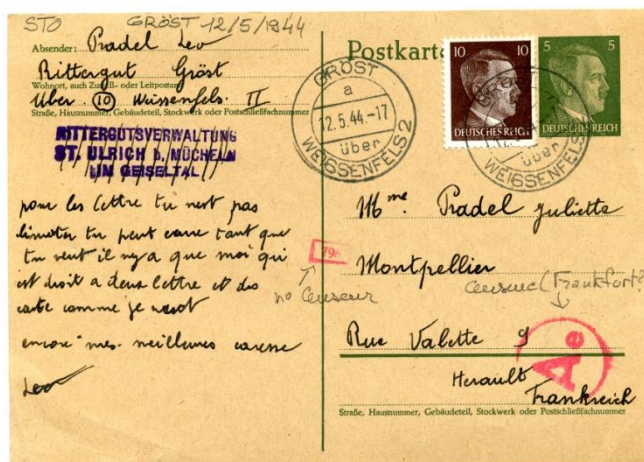 STO GRÖST 12/5/1944
Absender: Pradel Leo
Rittergut Gröst
Wohnort, auch Zustell- oder Leitpostamt
Über (10) Weissenfels II
Straße, Hausnummer, Gebäudeteil, Stockwerk oder Postschließfachnummer
RITTERGUTSVERWALTUNG
ST. ULRICH b. MÜCHELN
IM GEISELTAL
pour les lettre tu nest pas
limiter tu peut ecrire tant que
tu veut il ny a que moi qui
est droit a deux lettre et des
carte comme je veut
encore mes meilleures caresse
Leo
Postkarte
10 10
DEUTSCHES REICH
5 5
DEUTSCHES REICH
GRÖST
a
12.5.44.-17
über
WEISSENFELS 2
GRÖST
über
WEISSENFELS 2
Mme Pradel Juliette
Montpellier
no Censeur
censure (Frankfort?)
Rue Valette 9
Ae
Herault
Frankreich
Straße, Hausnummer, Gebäudeteil, Stockwerk oder Postschließfachnummer